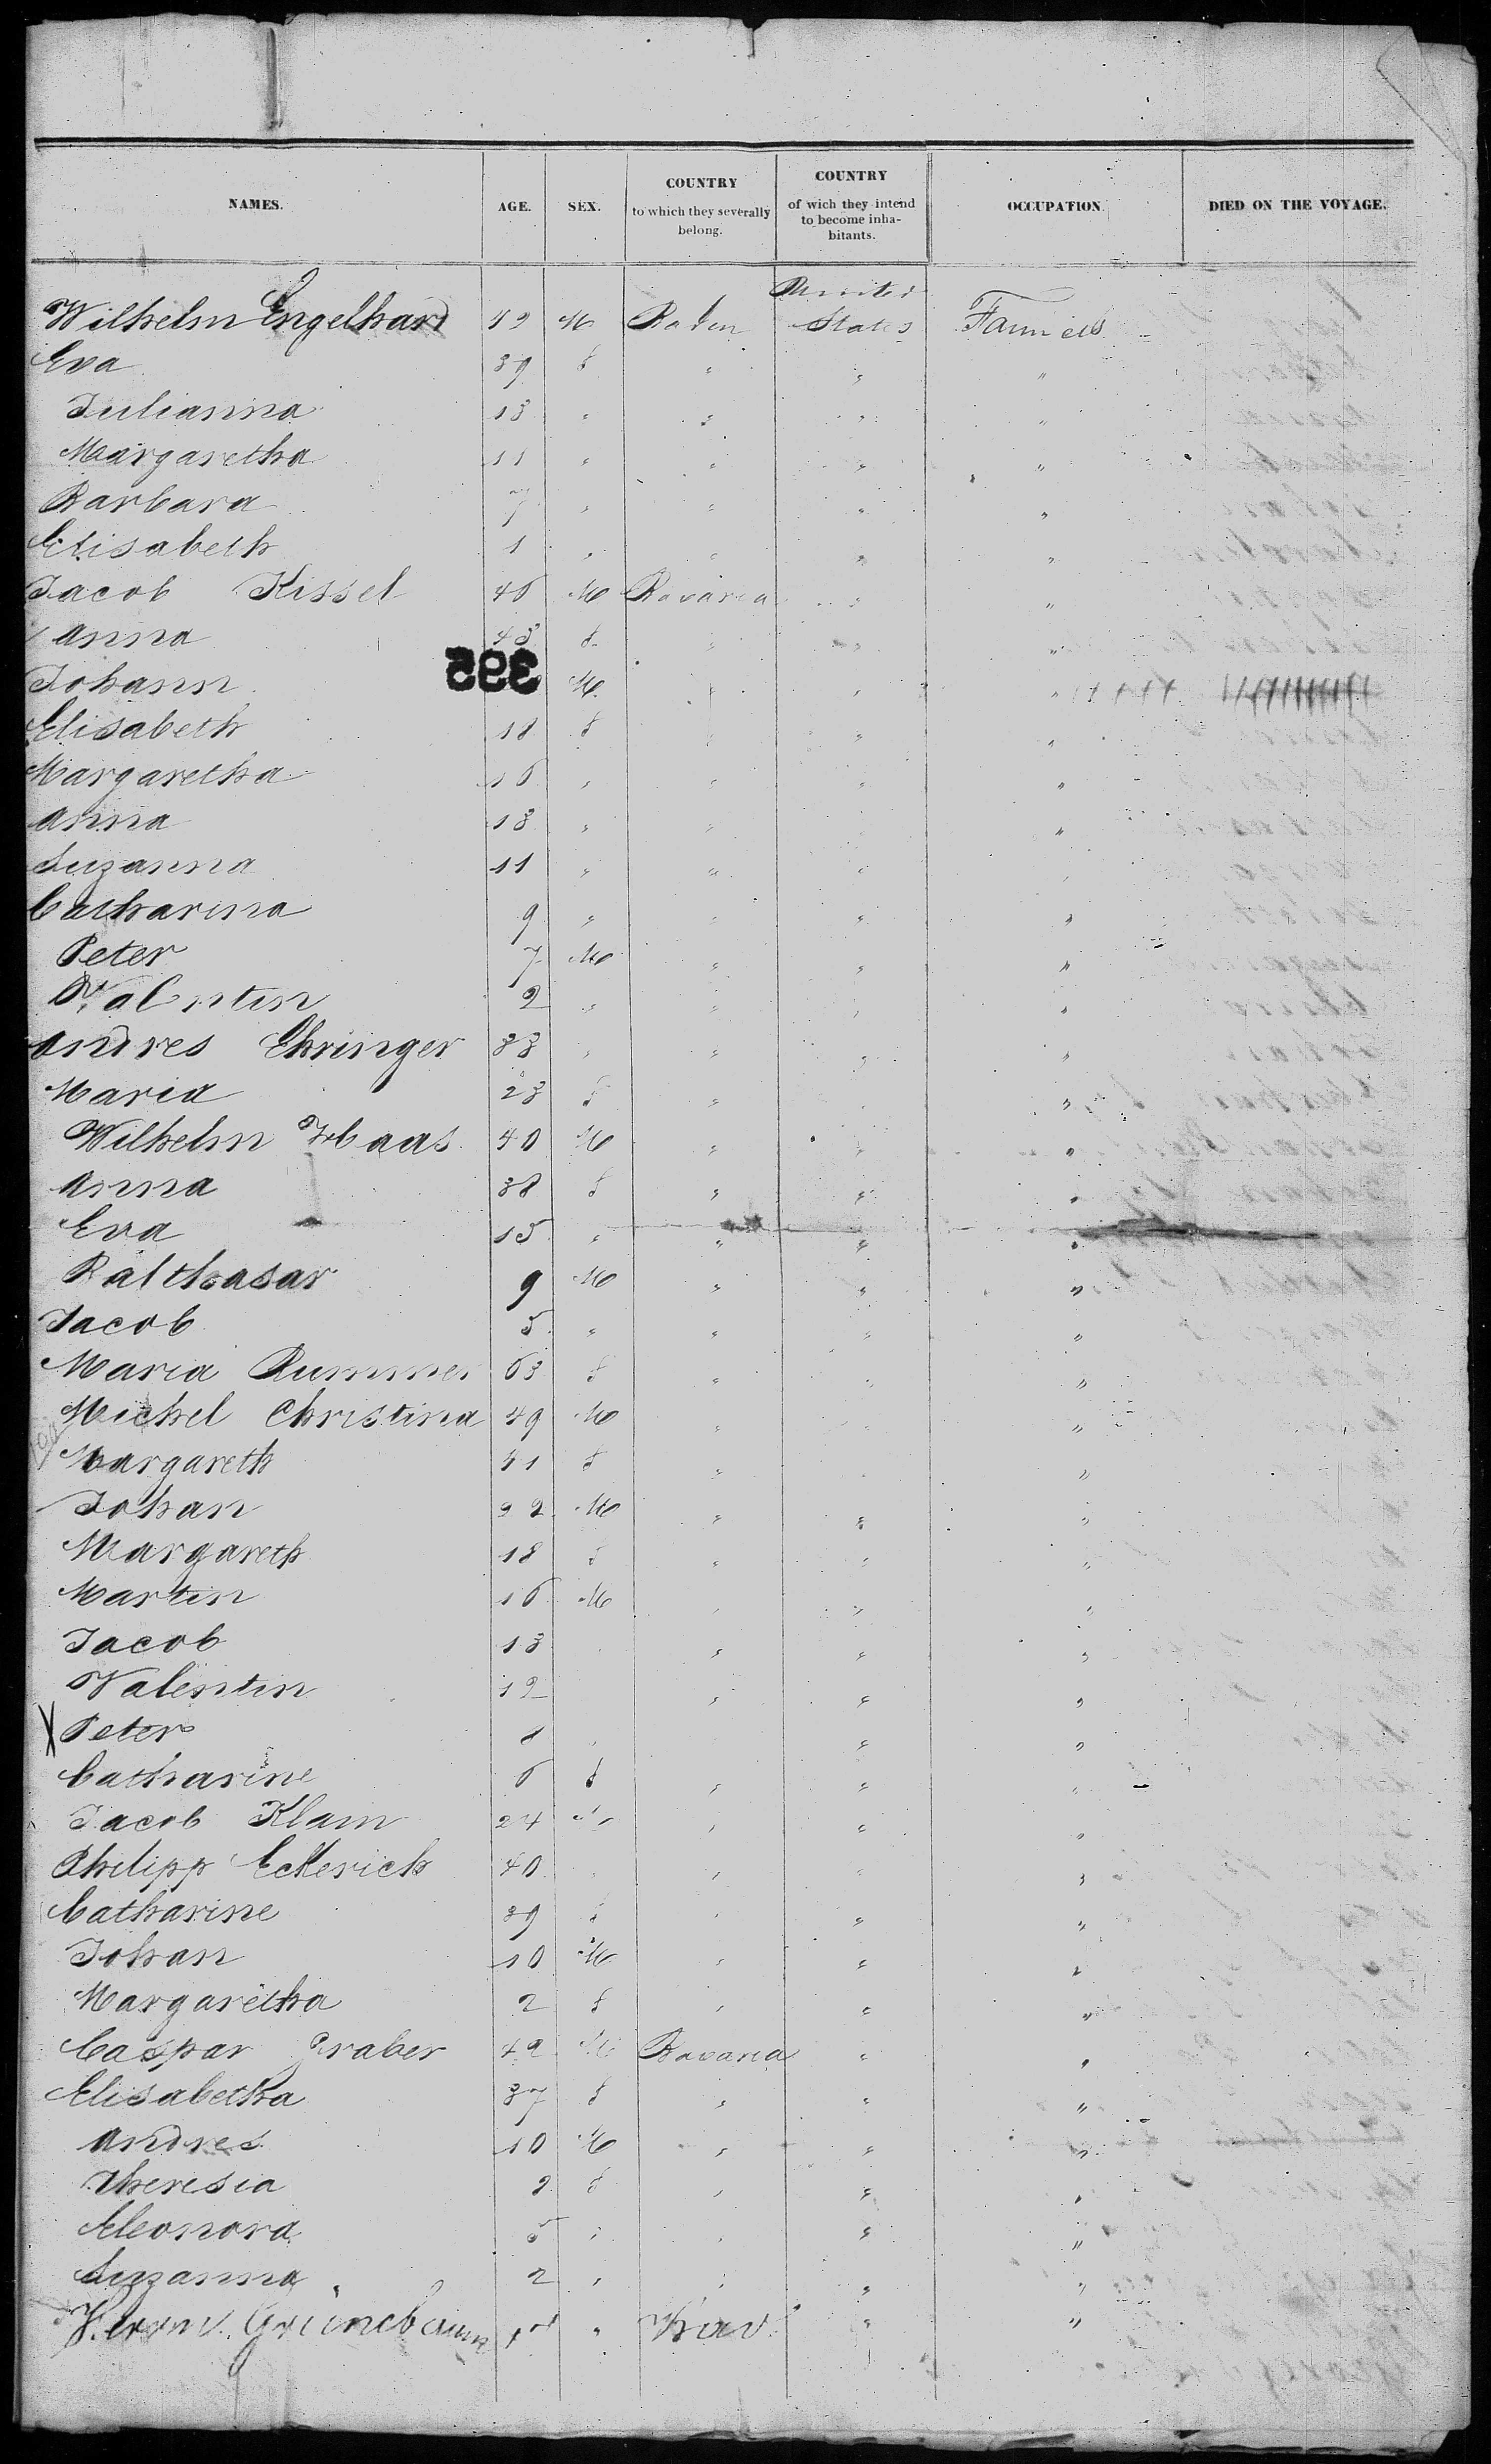 NAMES. AGE. SEX. COUNTRY to which they severally belong. COUNTRY of wich they intend to become inha-bitants. OCCUPATION. DIED ON THE VOYAGE.
United
Wilhelm Engelhard 49 M Baden States Farmers
Eva 39 f " " "
Julianna 13 " " " "
Margaretha 11 " " " "
Barbara 7 " " " "
Elisabeth 1 " " " "
Jacob Kissel 46 M Bavaria " "
Anna 43 f " " "
Johann M " " "
395
Elisabeth 18 f " " "
Margaretha 16 " " " "
Anna 13 " " " "
Suzanna 11 " " " "
Catharina 9 " " " "
Peter 7 M " " "
Valentin 2 " " " "
Andres Ehringer 33 " " " "
Maria 23 f " " "
Wilhelm Haas 40 M " " "
Anna 38 f " " "
Eva 15 " " " "
Balthasar 9 M " " "
Jacob 5 " " " "
Maria Rummer 63 f " " "
Michel Christina 49 M " " "
Margareth 41 f " " "
Johan 22 M " " "
Margareth 18 f " " "
Martin 16 M " " "
Jacob 13 " " "
Valentin 12 " " "
X Peter 8 " "
Catharine 6 f " " "
Jacob Klam 24 M " " "
Philipp Eckerich 40 " " "
Catharine 39 f " " "
Johan 10 M " " "
Margaretha 2 f " " "
Caspar Graber 42 M Bavaria " "
Elisabetha 37 f " " "
Andres 10 M " " "
Theresia 9 f " " "
Eleonora 5 " " " "
Suzanna 2 " " " "
Grünebaum " " "